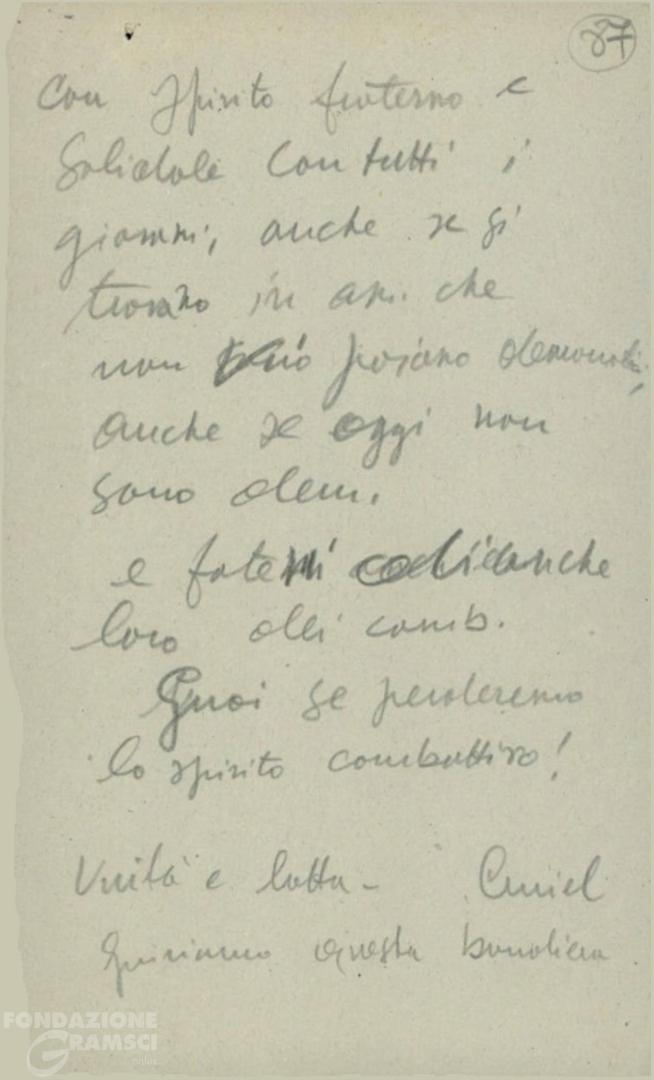 87
Con spirito fraterno e
Solidale con tutti i
giovani, anche se si
trovano in an. che
non possono
anche se oggi non
sono dem.
e fate anche
loro dei comb.
Guai se perderemo
lo spirito combattivo!
Unità e lotta - Curiel
questa bandiera
FONDAZIONE
GRAMSCI